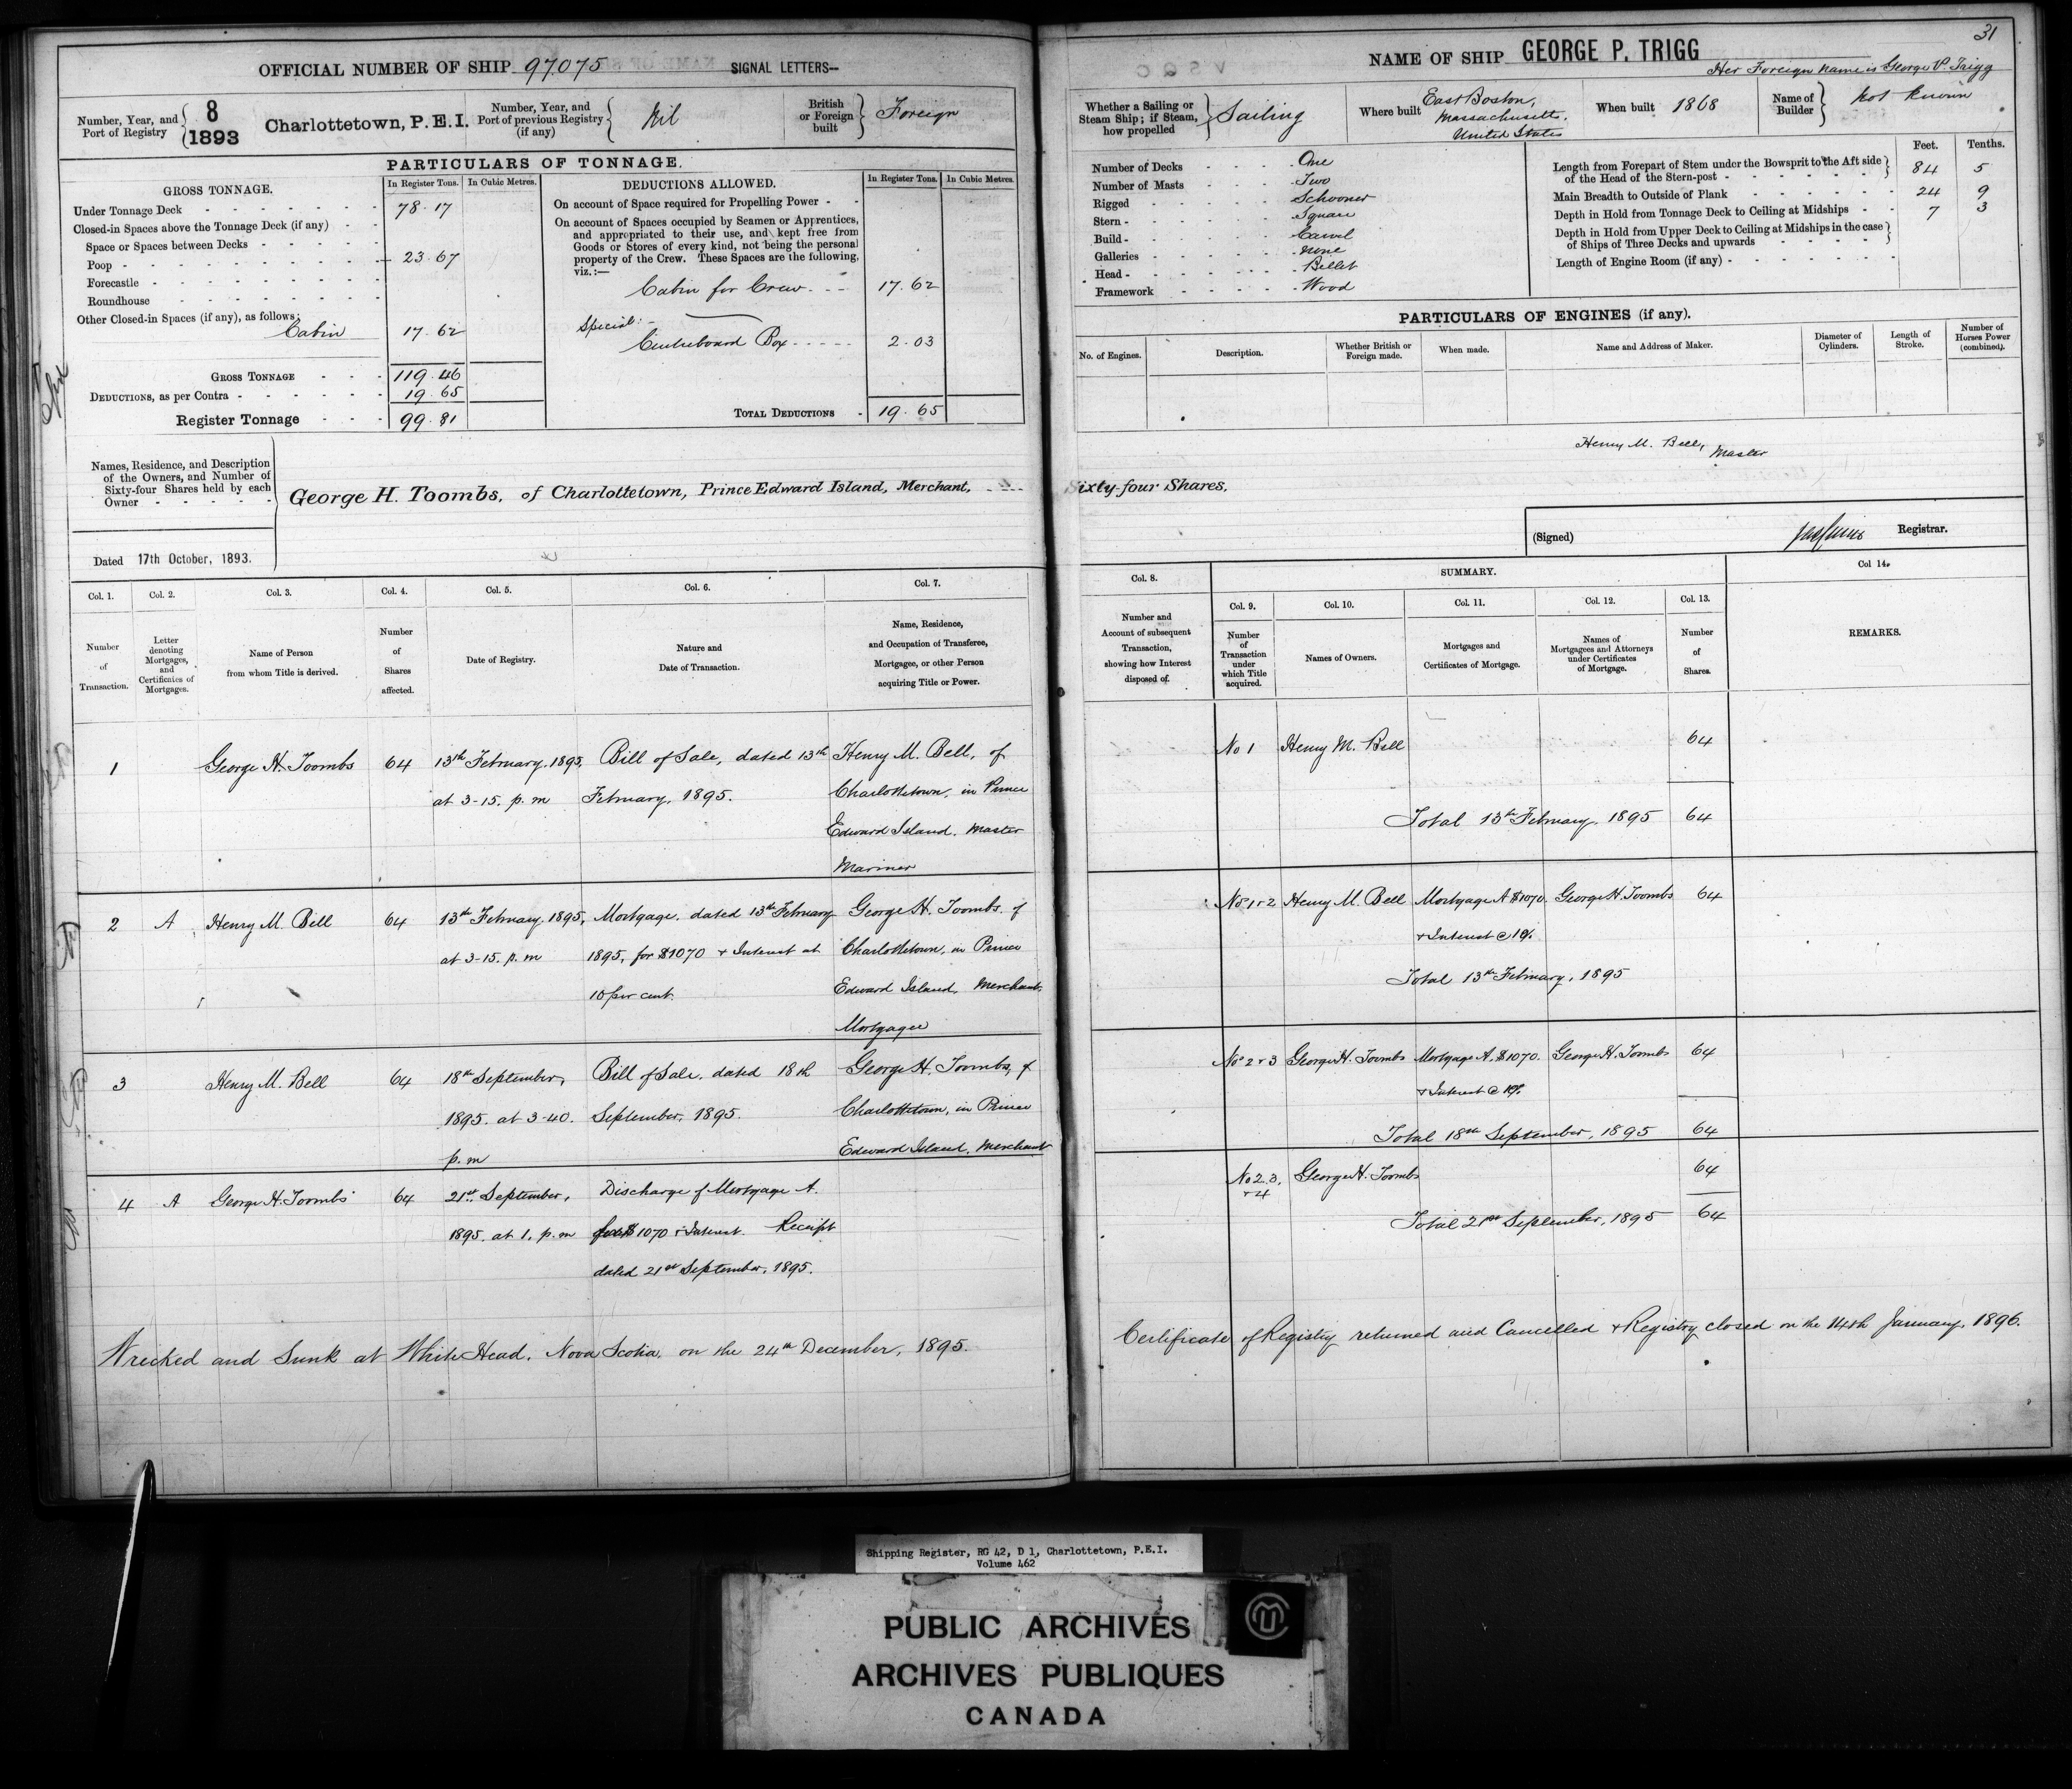 31
OFFICIAL NUMBER OF SHIP 97075 SIGNAL LETTERS—
Number, Year, and Port of Registry { 8 1893 Charlottetown, P.E.I.
Number, Year, and Port of previous Registry (if any) { Nil
British or Foreign built } Foreign
PARTICULARS OF TONNAGE.
GROSS TONNAGE. In Register Tons. In Cubic Metres.
Under Tonnage Deck 78.17
Closed-in Spaces above the Tonnage Deck (if any)
Space or Spaces between Decks
Poop 23.67
Forecastle
Roundhouse
Other Closed-in Spaces (if any), as follows:
Cabin 17.62
GROSS TONNAGE 119.46
DEDUCTIONS, as per Contra 19.65
Register Tonnage 99.81
DEDUCTIONS ALLOWED. In Register Tons. In Cubic Metres.
On account of Space required for Propelling Power
On account of Spaces occupied by Seamen or Apprentices,
and appropriated to their use, and kept free from
Goods or Stores of every kind, not being the personal
property of the Crew. These Spaces are the following,
viz.:—
Cabin for Crew 17.62
Special:-
Centreboard Box 2.03
TOTAL DEDUCTIONS 19.65
Names, Residence, and Description
of the Owners, and Number of
Sixty-four Shares held by each
Owner
George H. Toombs, of Charlottetown, Prince Edward Island, Merchant,
Dated 17th October, 1893.
NAME OF SHIP GEORGE P. TRIGG
Her Foreign name is George P. Trigg
Whether a Sailing or Steam Ship; if Steam, how propelled } Sailing
Where built East Boston, Massachusetts, United States
When built 1868
Name of Builder } Not Known
Number of Decks One
Number of Masts Two
Rigged Schooner
Stern Square
Build Carvel
Galleries None
Head Billet
Framework Wood
Feet. Tenths.
Length from Forepart of Stem under the Bowsprit to the Aft side
of the Head of the Stern-post 84 5
Main Breadth to Outside of Plank 24 9
Depth in Hold from Tonnage Deck to Ceiling at Midships 7 3
Depth in Hold from Upper Deck to Ceiling at Midships in the case
of Ships of Three Decks and upwards
Length of Engine Room (if any)
PARTICULARS OF ENGINES (if any).
No. of Engines. Description. Whether British or Foreign made. When made. Name and Address of Maker. Diameter of Cylinders. Length of Stroke. Number of Horses Power (combined).
Henry M. Bell, Master
Sixty-four Shares.
(Signed) Registrar.
Col. 1. Col. 2. Col. 3. Col. 4. Col. 5. Col. 6. Col. 7.
Number of Transaction.
Letter denoting Mortgages, and Certificates of Mortgages.
Name of Person from whom Title is derived.
Number of Shares affected.
Date of Registry.
Nature and Date of Transaction.
Name, Residence, and Occupation of Transferee, Mortgagee, or other Person acquiring Title or Power.
Col. 8. SUMMARY. Col 14.
Col. 9. Col. 10. Col. 11. Col. 12. Col. 13.
Number and Account of subsequent Transaction, showing how Interest disposed of.
Number of Transaction under which Title acquired.
Names of Owners.
Mortgages and Certificates of Mortgage.
Names of Mortgagees and Attorneys under Certificates of Mortgage.
Number of Shares.
REMARKS.
1 George H. Toombs 64 13th February, 1895, Bill of Sale, dated 13th Henry M. Bell, of
at 3-15. p.m February, 1895. Charlottetown, in Prince
Edward Island, Master
Mariner
No 1 Henry M. Bell 64
Total 13th February, 1895 64
2 A Henry M. Bell 64 13th February, 1895, Mortgage, dated 13th February George H. Toombs, of
at 3-15. p.m 1895, for $1070 + Interest at Charlottetown, in Prince
10 per cent. Edward Island, Merchant,
Mortgagee
Nos 1+2 Henry M. Bell Mortgage A $1070. George H. Toombs 64
+ Interest @ 10%.
Total 13th February, 1895
3 Henry M. Bell 64 18th September, Bill of Sale, dated 18th George H. Toombs, of
1895. at 3-40. September, 1895. Charlottetown, in Prince
p.m Edward Island, Merchant
Nos 2+3 George H. Toombs Mortgage A. $1070. George H. Toombs 64
+ Interest @ 10%.
Total 18th September, 1895 64
4 A George H. Toombs 64 21st September, Discharge of Mortgage A.
1895. at 1. p.m for $1070 + Interest. Receipt
dated 21st September, 1895.
No 2.3. +4 George H. Toombs 64
Total 21st September, 1895 64
Wrecked and Sunk at White Head, Nova Scotia, on the 24th December, 1895.
Certificate of Registry returned and Cancelled + Registry closed on the 14th January, 1896.
Shipping Register, RG 42, D 1, Charlottetown, P.E.I.
Volume 462
PUBLIC ARCHIVES
ARCHIVES PUBLIQUES
CANADA